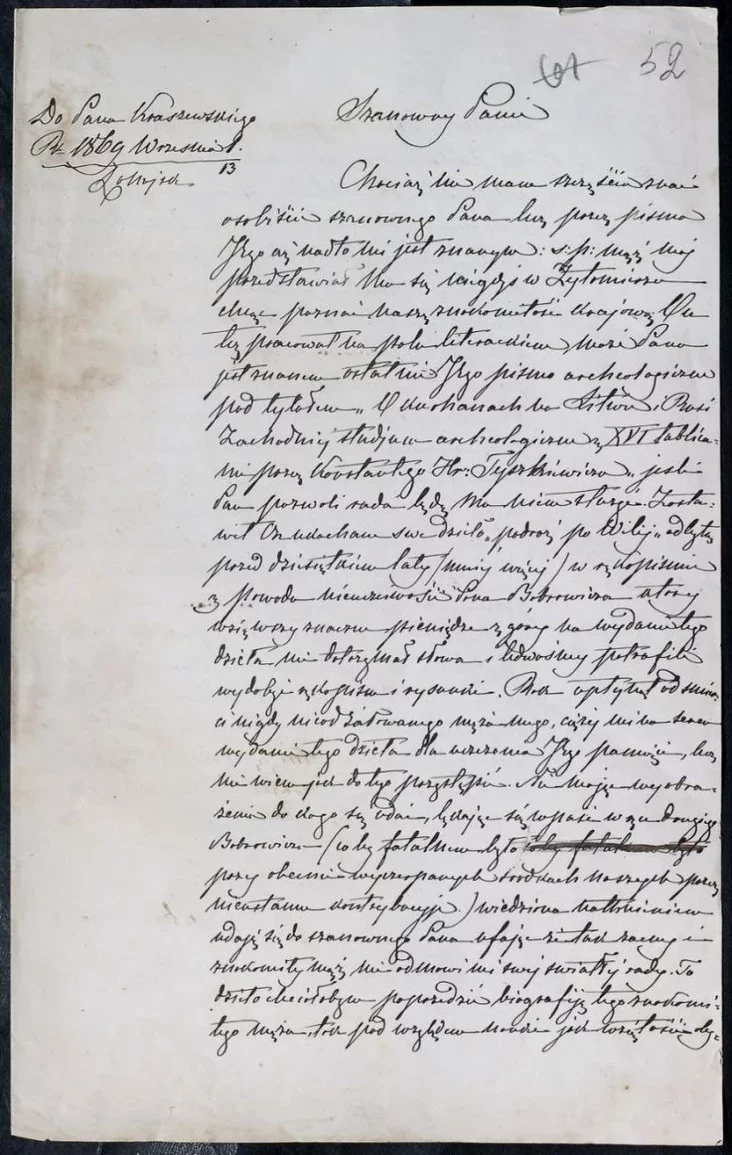 52
Do Pana Kraszewskiego
Szanowny Panie
Rr. 1869 Września d.
13
Łohojsk
Chociaż nie mam szczęścia znać
osobiście szanownego Pana lecz przez pisma
Jego aż nadto mi jest znanym: s: p: mąż mój
przedstawiał Mu się niegdyś w Żytomierzu
chcąc poznać naszę znakomitość krajową; On
też pracował na polu literackiem, może Panu
jest znanem ostatnie Jego pismo archeologiczne
pod tytułem „ O Kurhanach na Litwie i Rusi
Zachodniej studjum archeologiczne z XVI tablica-
mi przez Konstantego Hr: Tyszkiewicza „ jeśli
Pan pozwoli rada będę Mu niem służyć. Zosta-
wił On ukochane swe dzieło „podróż po Wilij„ odbytą
przed dziesiątkiem laty /mniéj więcéj/ w rękopismie
z powodu nieuczciwości Pana Bobrowicza który
wziąwszy znaczne pieniądze z góry na wydanie tego
dzieła nie dotrzymał słowa i ledwośmy potrafili
wydobyć rękopism i rysunki. Rok upłynął od śmier-
ci nigdy nieodżałowanego męża mego, cięży mi na sercu
wydanie tego dzieła dla uczczenia Jego pamięci, lecz
nie wiem jak do tego przystąpić. Nie mając wyobra-
żenia do kogo się udać, lękając się wpaść w ręce drugiego
Bobrowicza /co by fatalnem było
przy obecnie wyczerpanych środkach naszych przez
nieustanne kontrybucyje/ wiedziona natchnieniem
udaję się do szanownego Pana ufając że tak zacny i
znakomity mąż nie odmówi mi swej światłej rady. To
dzieło chciałabym poprzedzić biografiją tego znakomi-
tego męża, tak pod względem nauki jak